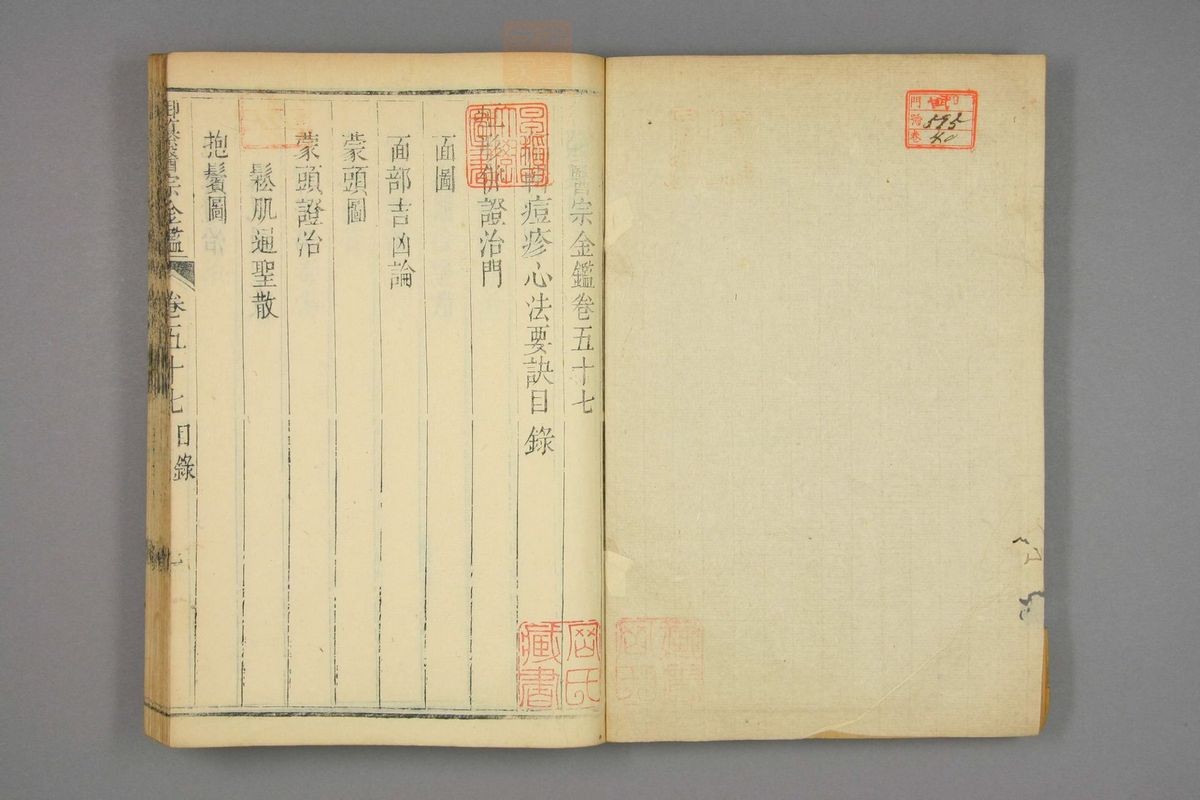 醫宗金鑑卷五十七
痘疹心法要訣目錄
證治門
面圖
面部吉凶論
蒙頭圖
蒙頭證治
鬆肌通聖散
抱鬢圖
醫宗金鑑
卷五十七
目錄
一
藏書
595